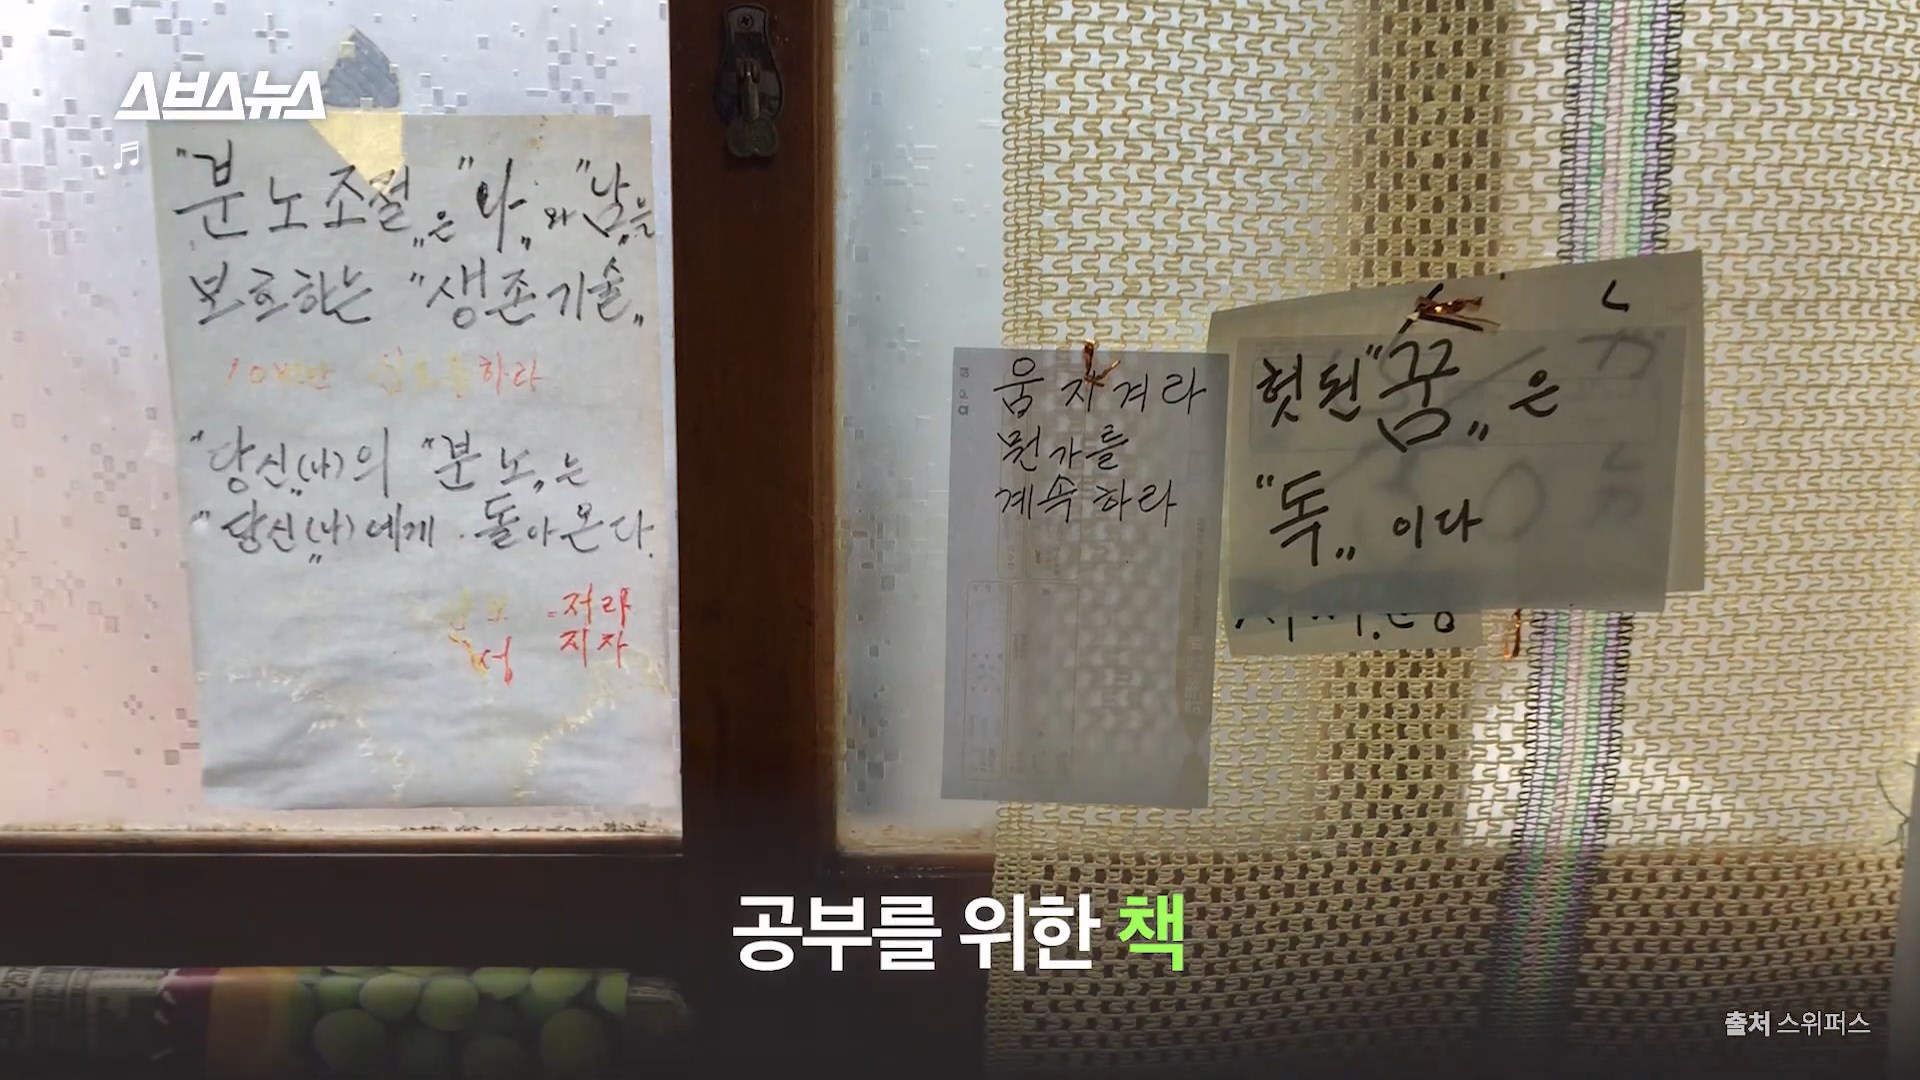 스브스뉴스
"분노조절„은 "나„와 "남„을
보호하는 "생존기술„
하라
"당신(나)의 "분노„는
"당신(나)에게 돌아온다.
저라
지자
움직겨라
뭔가를
계속하라
헛된 "꿈„은
"독„이다
공부를 위한 책
출처 스위퍼스